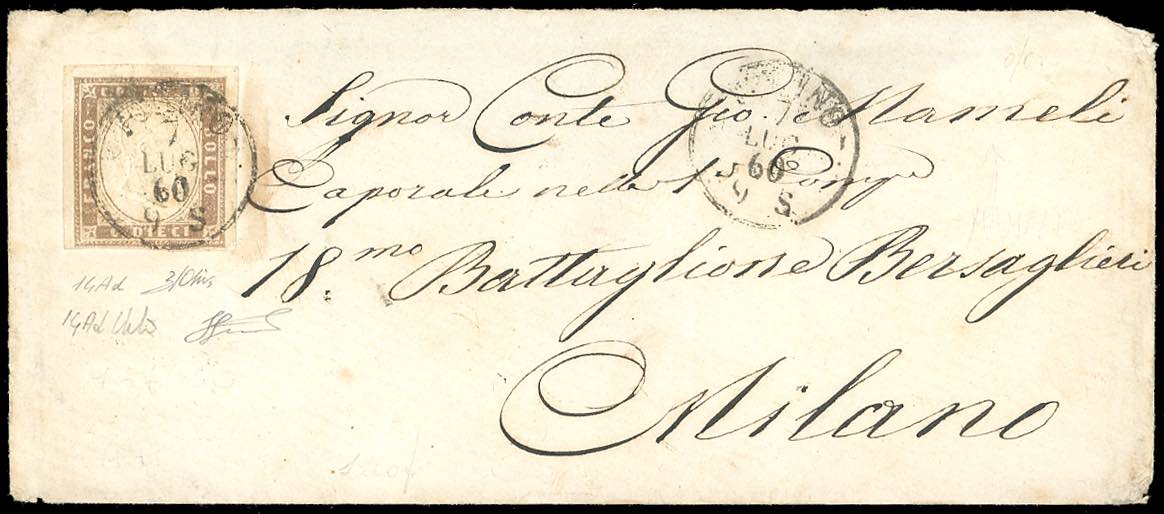 FRANCO BOLLO
C. DIECI
7
LUG
60
9 S
TORINO
LUG
60
9 S
Signor Conte Gio. Mameli
Caporale nella 1ª Compª
18.mo Battaglione Bersaglieri
Milano
14Ad
14Ad